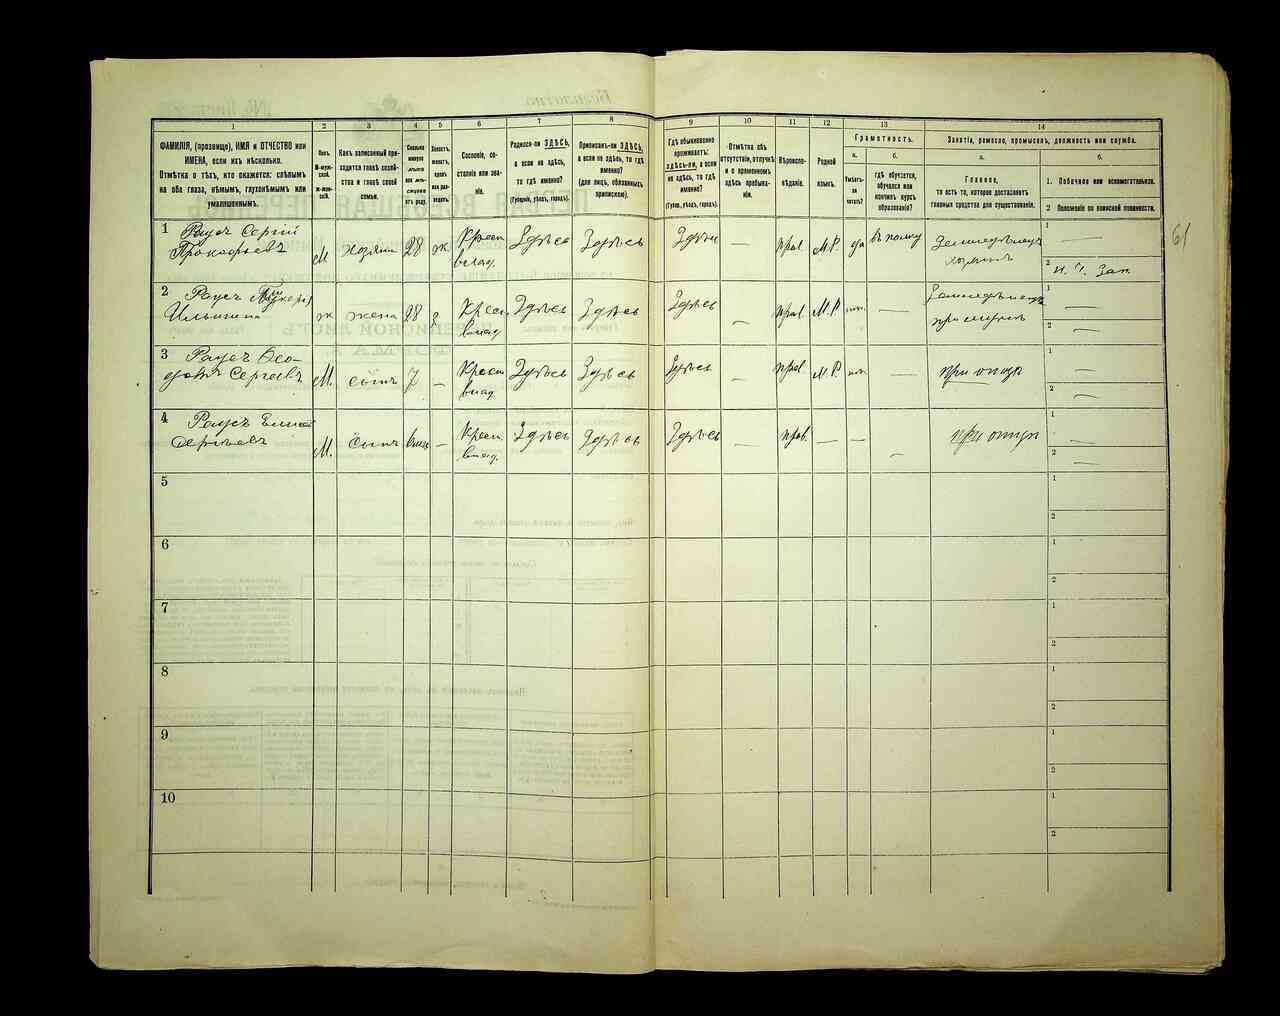 1
2
3
4
5
6
7
8
9
10
11
12
13
14
ФАМИЛІЯ, (прозвище), ИМЯ и ОТЧЕСТВО или
ИМЕНА, если ихъ нѣсколько.
Отмѣтка о тѣхъ, кто окажется: слѣпымъ
на оба глаза, нѣмымъ, глухонѣмымъ или
умалишеннымъ.
Полъ.
М-мужской.
Ж-женской.
Какъ записанный при-
ходится главѣ хозяй-
ства и главѣ своей
семьи.
Сколько
минуло
лѣтъ
или мѣ-
сяцевъ
отъ роду.
Холостъ,
женатъ,
вдовъ
или раз-
веденъ.
Сословіе, со-
стояніе или зва-
ніе.
Родился-ли ЗДѢСЬ,
а если не здѣсь,
то гдѣ именно?
(Губернія, уѣздъ, городъ).
Приписанъ-ли ЗДѢСЬ,
а если не здѣсь, то гдѣ
именно?
(для лицъ, обязанныхъ
припискою).
Гдѣ обыкновенно
проживаетъ:
здѣсь-ли, а если
не здѣсь, то гдѣ
именно?
(Губерн., уѣздъ, городъ).
Отмѣтка объ
отсутствіи, отлучкѣ
и о временномъ
здѣсь пребыва-
ніи.
Вѣроиспо-
вѣданіе.
Родной
языкъ.
Грамотность.
а.
б.
Умѣетъ-
ли
читать?
гдѣ обучается,
обучался или
кончилъ курсъ
образованія?
Занятіе, ремесло, промыселъ, должность или служба.
а.
б.
Главное,
то есть то, которое доставляетъ
главныя средства для существованія.
1. Побочное или вспомогательное.
2 Положеніе по воинской повинности.
61
1
Сергій
Прокофьевъ
М
хозяинъ
28
ж.
Крест.
влад.
Здѣсь
Здѣсь
Здѣсь
—
прав
М.Р.
да
Земледѣлецъ
хозяинъ
1
—
2
2
Ильинна
ж
жена
28
з
Крест.
влад.
Здѣсь
Здѣсь
Здѣсь
—
прав
М.Р.
нѣт.
—
Земледѣлецъ
при мужѣ
1
—
2
—
3
Ѳео-
Сергѣевъ
М.
сынъ
7
—
Крест
влад
Здѣсь
Здѣсь
Здѣсь
—
прав
М.Р.
нѣт.
—
при отцѣ
1
—
2
—
4
Сергѣевъ
М.
сынъ
—
Крест.
влад.
Здѣсь
Здѣсь
Здѣсь
—
прав.
—
—
—
при отцѣ
1
—
2
—
5
1
2
6
1
2
7
1
2
8
1
2
9
1
2
10
1
2